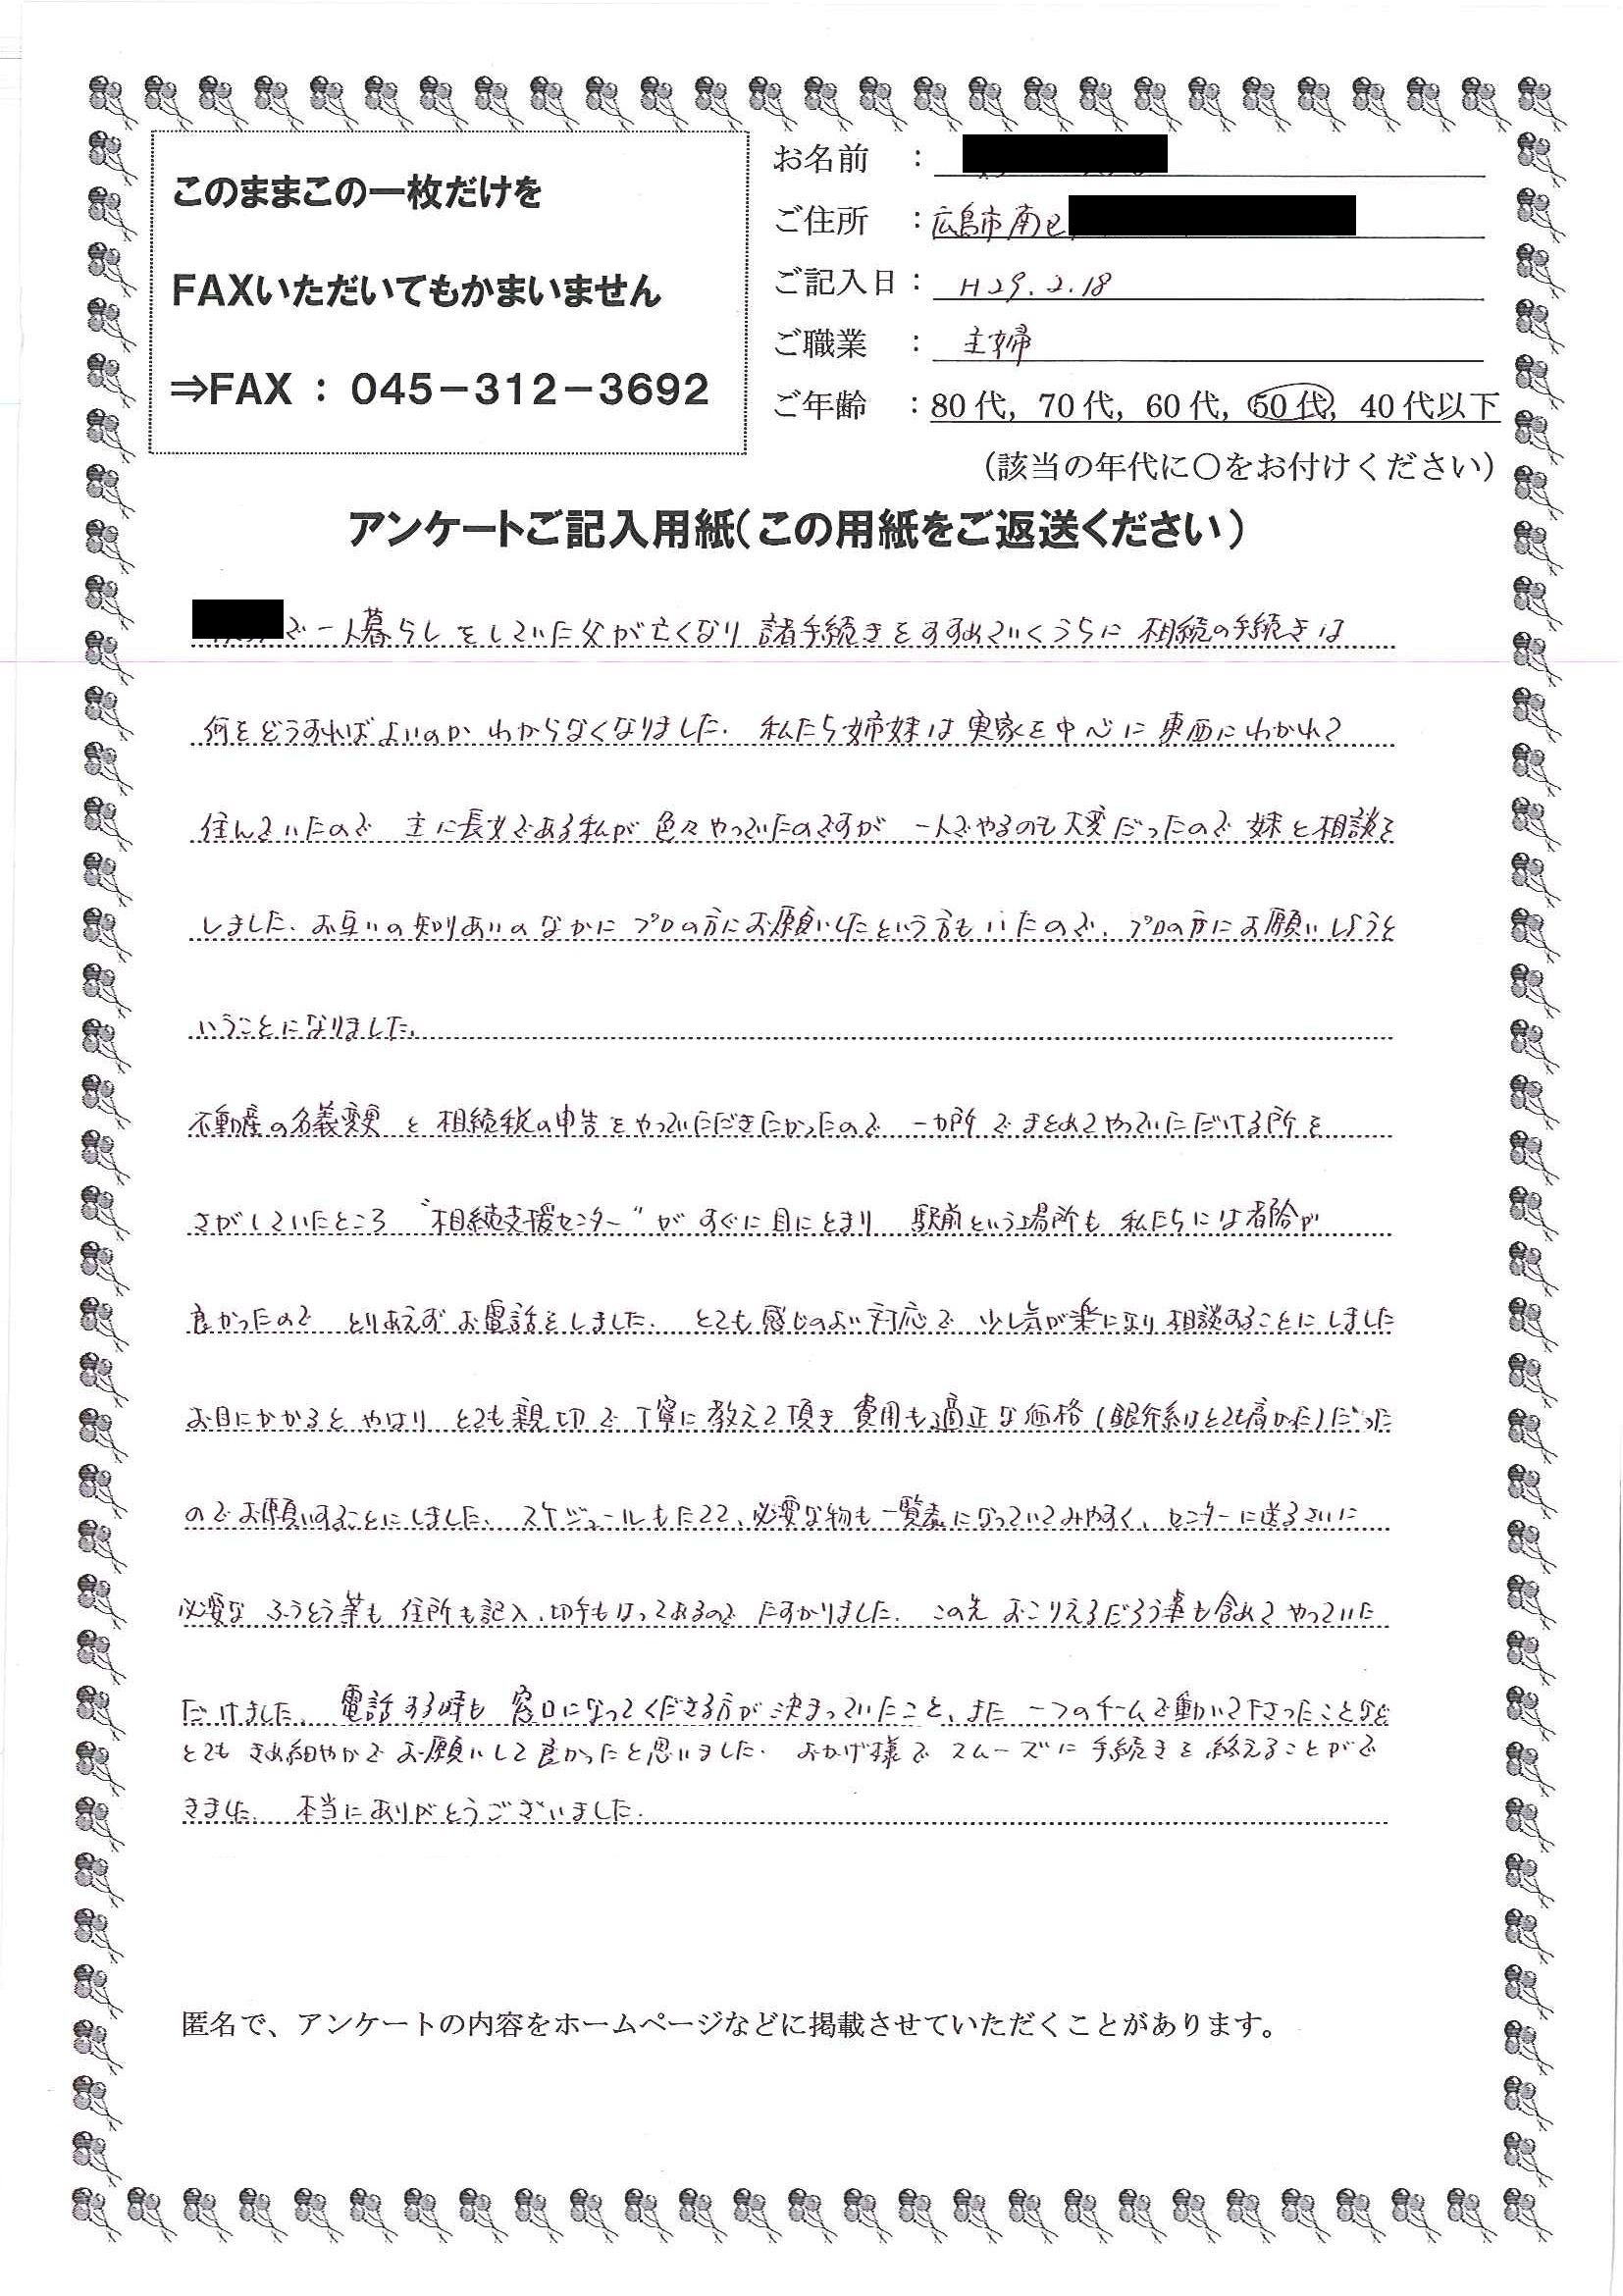 このままこの一枚だけを
FAXいただいてもかまいません
⇒FAX：045－312－3692
お名前　：
ご住所　：広島市南区
ご記入日：H29.2.18
ご職業　：主婦
ご年齢　：80代，70代，60代，50代，40代以下
（該当の年代に〇をお付けください）
アンケートご記入用紙（この用紙をご返送ください）
で一人暮らしをしていた父が亡くなり 諸手続きをすすめていくうちに 相続の手続きは
何をどうすればよいのか わからなくなりました. 私たち姉妹は実家を中心に 東西にわかれて
住んでいたので 主に長女である私が 色々やっていたのですが 一人でやるのも大変だったので 妹と相談を
しました. お互いの知りあいのなかに プロの方にお願いしたという方もいたので、プロの方にお願いしようと
いうことになりました.
不動産の名義変更 と 相続税の申告をやっていただきたかったので 一カ所でまとめてやっていただける所を
さがしていたところ “相続支援センター”が すぐに目にとまり 駅前という場所も 私たちには都合が
良かったので とりあえずお電話をしました. とても感じのよい対応で 少し気が楽になり 相談することにしました
お目にかかると やはり とても親切で丁寧に教えて頂き 費用も適正な価格（銀行系はとても高かった）だった
のでお願いすることにしました、スケジュールもたてて、必要な物も一覧表になっていてみやすく、センターに送るさいに
必要な ふうとう等も 住所も記入、切手もはってあるので たすかりました. この先 おこりえるだろう事も含めて やっていた
だけました. 電話する時も 窓口になってくださる方が決まっていたこと、また 一つのチームで動いて下さったことなど
とても きめ細やかで お願いして良かったと思いました. おかげ様で スムーズに 手続きを終えることがで
きました. 本当にありがとうございました.
匿名で、アンケートの内容をホームページなどに掲載させていただくことがあります。